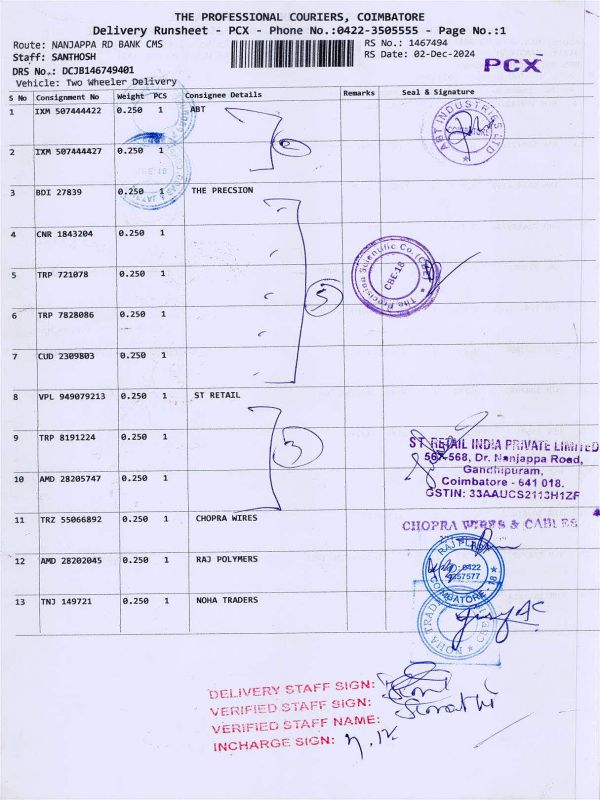 THE PROFESSIONAL COURIERS, COIMBATORE
Delivery Runsheet - PCX - Phone No.:0422-3505555 - Page No.:1
Route: NANJAPPA RD BANK CMS
RS No.: 1467494
Staff: SANTHOSH
RS Date: 02-Dec-2024
PCX
DRS No.: DCJB146749401
Vehicle: Two Wheeler Delivery
S No Consignment No Weight PCS Consignee Details Remarks Seal & Signature
1 IXM 507444422 0.250 1 ABT
ABT INDUSTRIES LTD
COIMBATORE
2 IXM 507444427 0.250 1
2
3 BDI 27839 0.250 1 THE PRECSION
4 CNR 1843204 0.250 1
The Precision Scientific Co. (CBE)
CBE-18
5 TRP 721078 0.250 1
5
6 TRP 7828086 0.250 1
7 CUD 2309803 0.250 1
8 VPL 949079213 0.250 1 ST RETAIL
9 TRP 8191224 0.250 1
3
ST RETAIL INDIA PRIVATE LIMITED
567-568, Dr. Nanjappa Road,
Gandhipuram,
Coimbatore - 641 018.
GSTIN: 33AAUCS2113H1ZF
10 AMD 28205747 0.250 1
11 TRZ 55066892 0.250 1 CHOPRA WIRES
CHOPRA WIRES & CABLES
12 AMD 28202045 0.250 1 RAJ POLYMERS
COIMBATORE - 18
13 TNJ 149721 0.250 1 NOHA TRADERS
DELIVERY STAFF SIGN:
VERIFIED STAFF SIGN:
VERIFIED STAFF NAME:
INCHARGE SIGN: